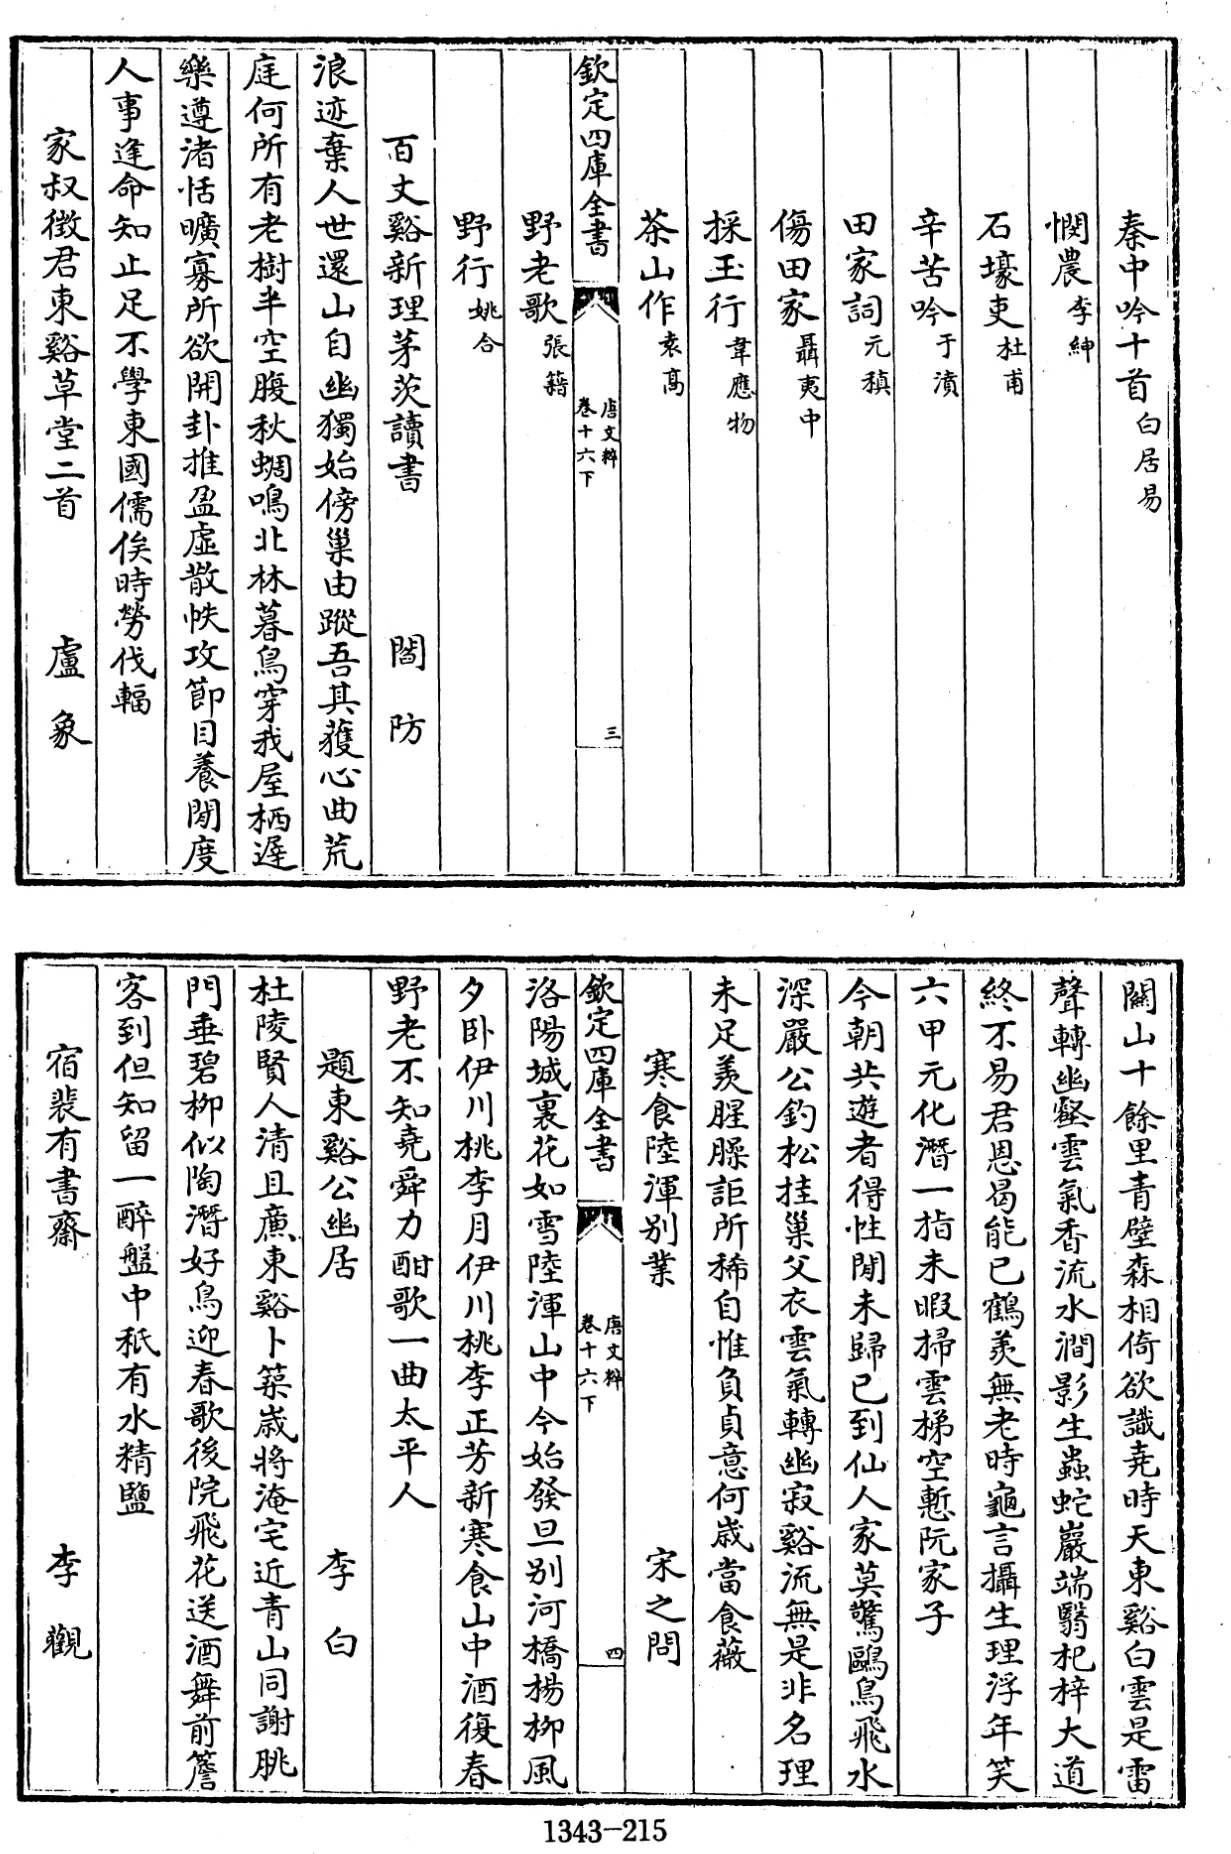 秦中吟十首白居易
憫農李紳
石壕吏杜甫
辛苦吟于濆
田家詞元稹
傷田家聶夷中
採玉行韋應物
茶山作袁高
欽定四庫全書
唐文粹
卷十六下
三
野老歌張籍
野行姚合
百丈谿新理茅茨讀書 閻防
浪迹棄人世還山自幽獨始傍巢由蹤吾其獲心曲荒
庭何所有老樹半空腹秋蜩鳴北林暮鳥穿我屋栖遲
樂遵渚恬曠寡所欲開卦推盈虛散帙攻節目養閒度
人事逢命知止足不學東國儒俟時勞伐輻
家叔徵君東谿草堂二首 盧象
關山十餘里青壁森相倚欲識堯時天東谿白雲是雷
聲轉幽壑雲氣香流水澗影生蟲蛇巖端翳杞梓大道
終不易君恩曷能已鶴羨無老時龜言攝生理浮年笑
六甲元化潛一指未暇掃雲梯空慙阮家子
今朝共遊者得性閒未歸已到仙人家莫驚鷗鳥飛水
深嚴公釣松挂巢父衣雲氣轉幽寂谿流無是非名理
未足羨腥臊詎所稀自惟負貞意何歲當食薇
寒食陸渾别業 宋之問
欽定四庫全書
唐文粹
卷十六下
四
洛陽城裏花如雪陸渾山中今始發旦别河橋楊柳風
夕卧伊川桃李月伊川桃李正芳新寒食山中酒復春
野老不知堯舜力酣歌一曲太平人
題東谿公幽居 李白
杜陵賢人清且廉東谿卜築歲將淹宅近青山同謝朓
門垂碧柳似陶潛好鳥迎春歌後院飛花送酒舞前簷
客到但知留一醉盤中秖有水精鹽
宿裴有書齋 李觀
1343-215